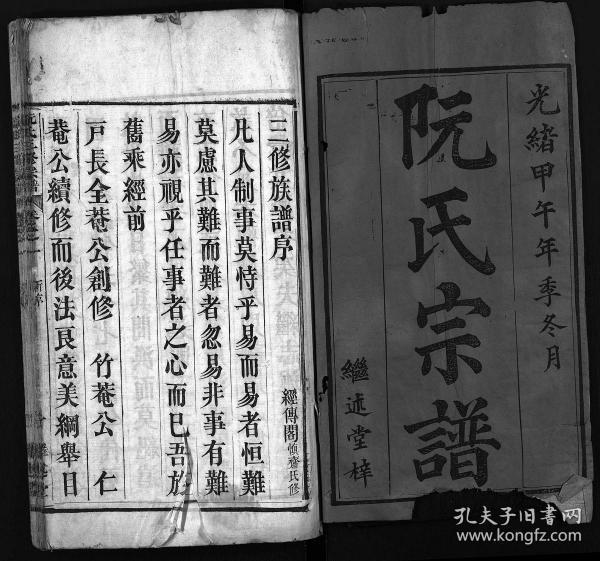 光緒甲午年季冬月
阮氏宗譜
繼述堂梓
三修族譜序
經傳閣愼齋氏修
凡人制事莫恃乎易而易者恒難
莫慮其難而難者忽易非事有難
易亦視乎任事者之心而已吾族
舊乘經前
戸長全菴公創修 竹菴公 仁
菴公續修而後法良意美綱舉目
孔夫子旧书网
www.kongfz.com